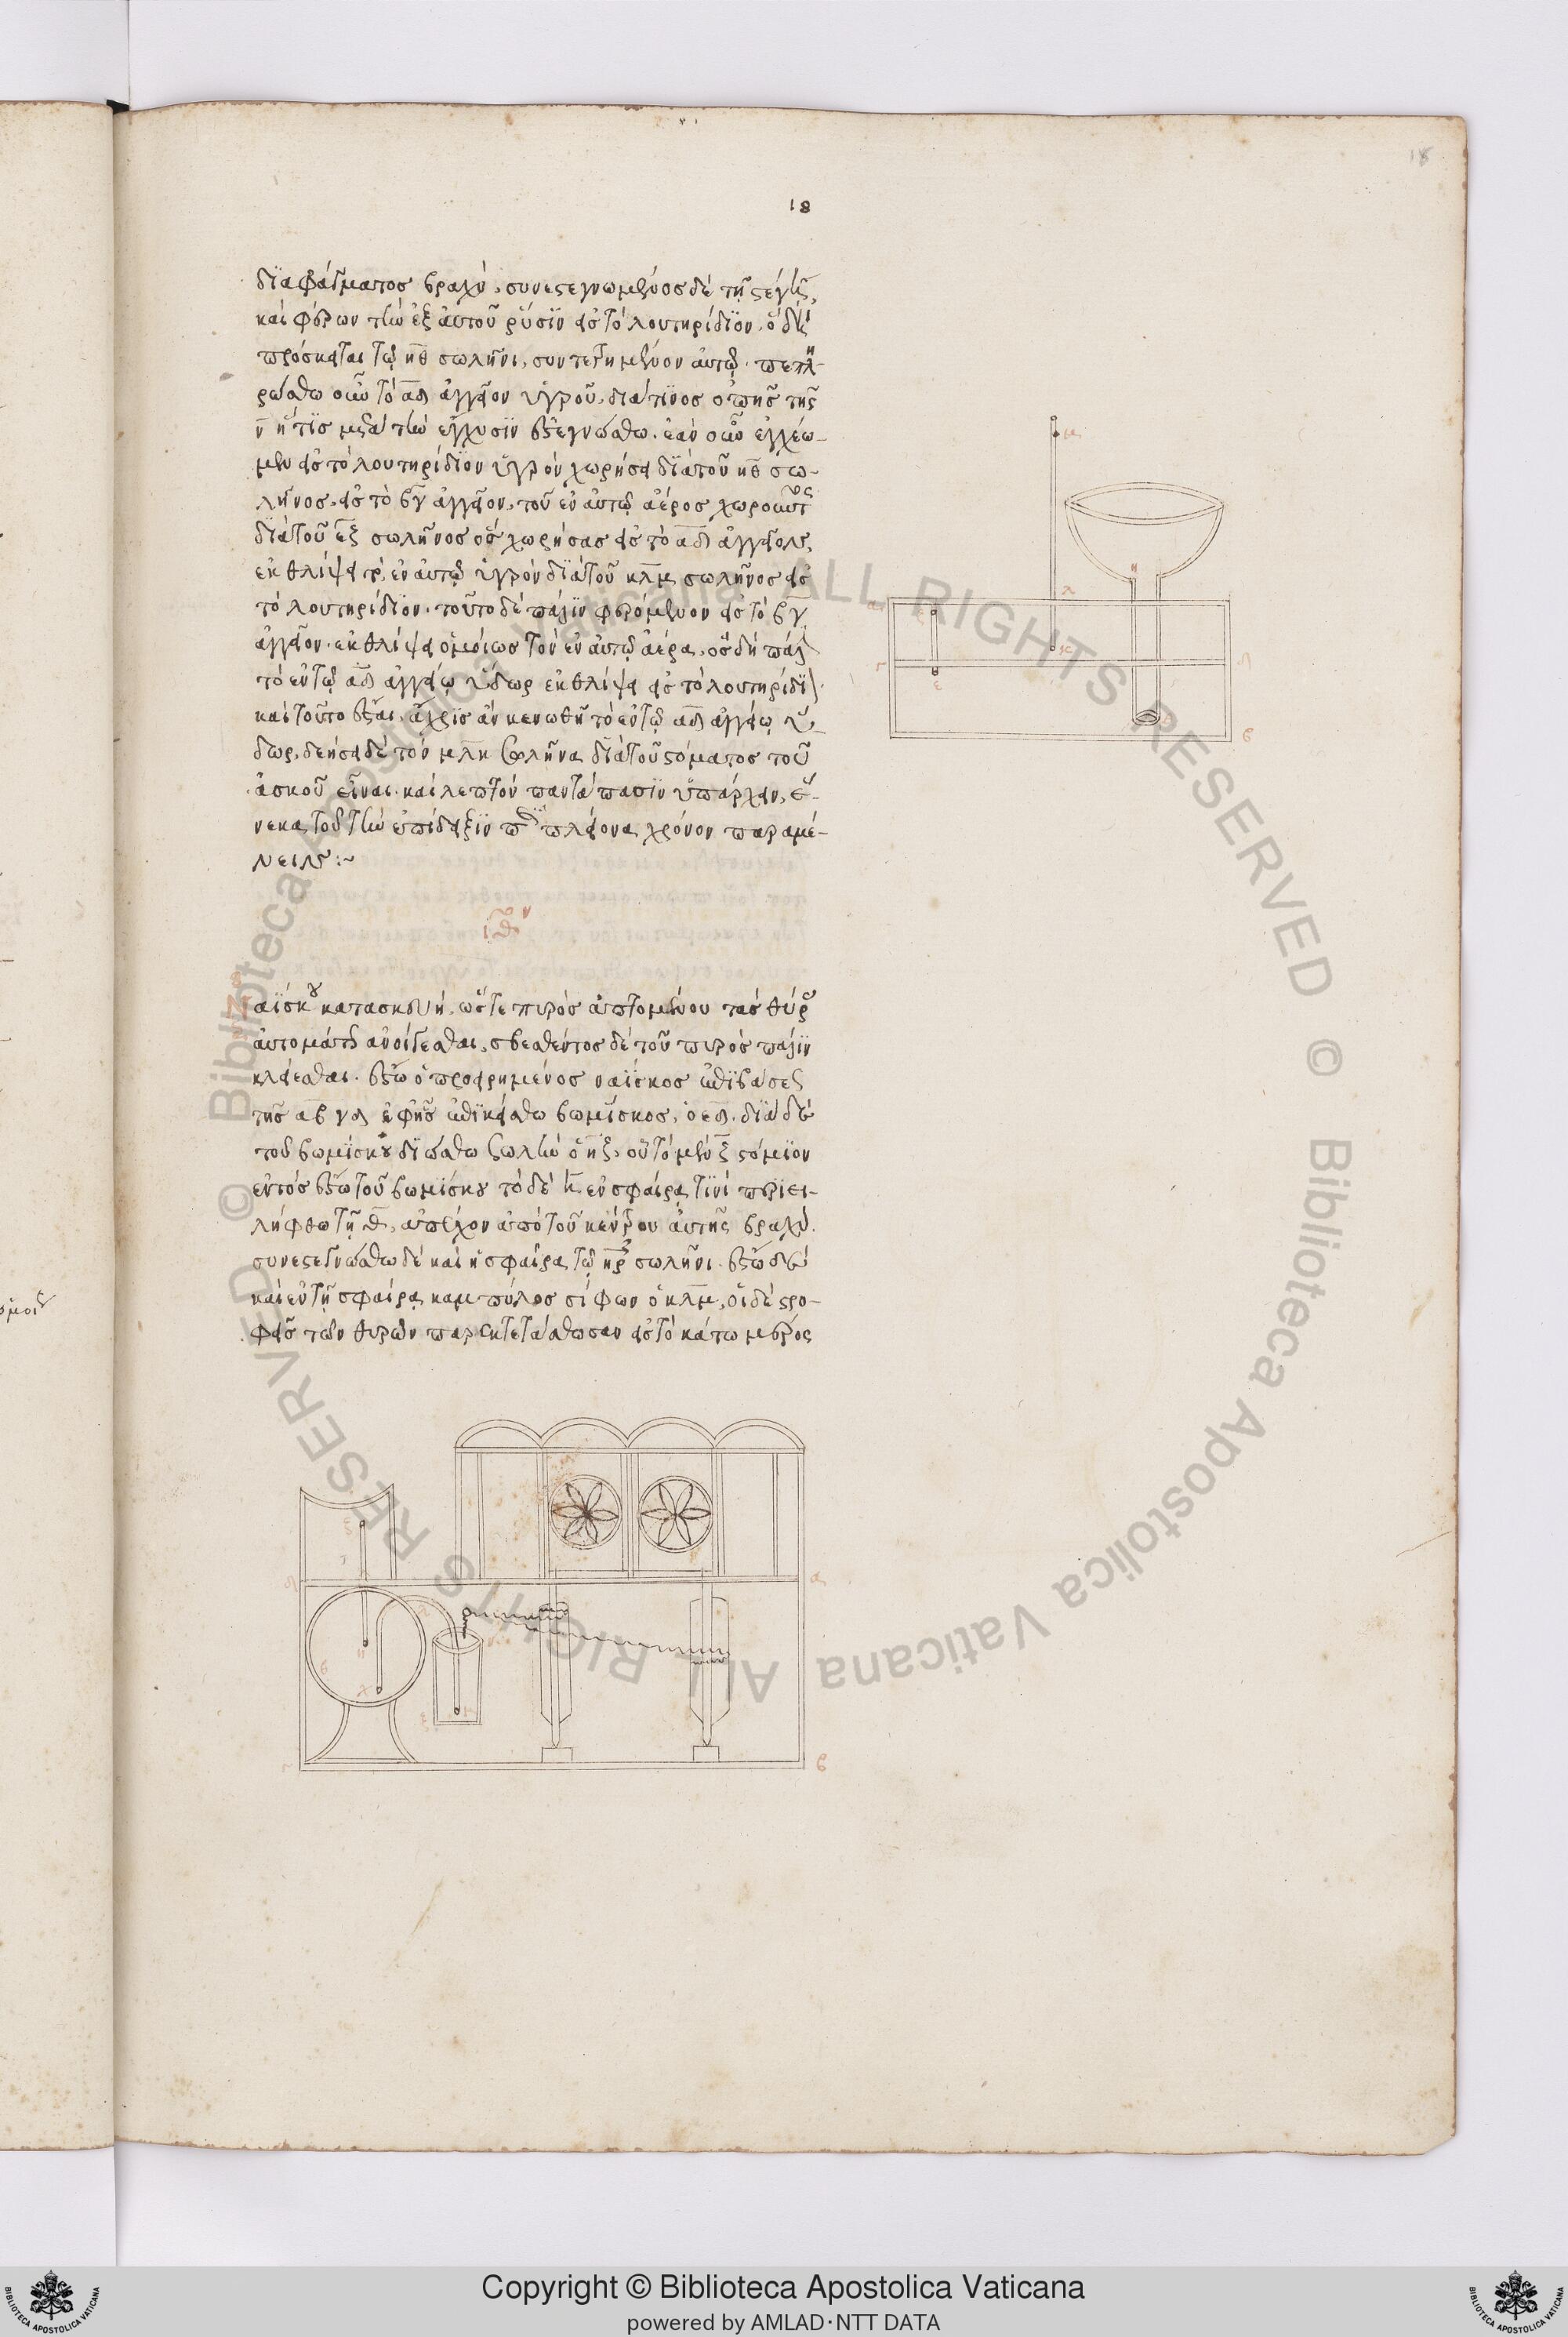 18
18
διαφράγματος βραχύ, συνεστεγνωμένος δὲ τῇ στέγῃ,
καὶ φέρων τὴν ἐξ αὐτοῦ ῥύσιν εἰς τὸ λουτηρίδιον, ὃ δὴ
πρόσκειται τῷ ηθ σωλῆνι, συντετρημένον αὐτῷ. πεπλη-
ρώσθω οὖν τὸ αδ ἀγγεῖον ὑγροῦ, διά τινος ὀπῆς τῆς
ν ἥτις μετὰ τὴν ἔγχυσιν στεγνώσθω. ἐὰν οὖν ἐγχέω-
μεν εἰς τὸ λουτηρίδιον ὑγρὸν χωρήσει διὰ τοῦ ηθ σω-
λῆνος, εἰς τὸ βγ ἀγγεῖον, τοῦ ἐν αὐτῷ ἀέρος χωροῦντος
διὰ τοῦ εξ σωλῆνος ὃς χωρήσας εἰς τὸ αδ ἀγγεῖον,
ἐκθλίψει τὸ ἐν αὐτῷ ὑγρὸν διὰ τοῦ κλμ σωλῆνος εἰς
τὸ λουτηρίδιον. τοῦτο δὲ πάλιν φερόμενον εἰς τὸ βγ
ἀγγεῖον. ἐκθλίψει ὁμοίως τὸν ἐν αὐτῷ ἀέρα, ὃς δὴ πάλιν
τὸ ἐν τῷ αδ ἀγγείῳ ὕδωρ ἐκθλίψει εἰς τὸ λουτηρίδιον.
καὶ τοῦτο ἔσται, ἄχρις ἂν κενωθῇ τὸ ἐν τῷ αδ ἀγγείῳ ὕ-
δωρ, δεήσει δὲ τὸν μλκ σωλῆνα διὰ τοῦ στόματος τοῦ
ἀσκοῦ εἶναι. καὶ λεπτὸν παντάπασιν ὑπάρχειν, ἕ-
νεκα τοῦ τὴν ἐπίδειξιν ἐπὶ πλείονα χρόνον παραμέ-
νειν:~
ιθον
Ναΐσκου κατασκευή, ὥστε πυρὸς ἁπτομένου τὰς θύρας
αὐτομάτως ἀνοίγεσθαι, σβεσθέντος δὲ τοῦ πυρὸς πάλιν
κλείεσθαι. ἔστω ὁ προειρημένος ναΐσκος ἐπὶ βάσεως
τῆς αβγδ ἐφ' ἧς ἐπικείσθω βωμίσκος, ὁ εδ. διὰ δὲ
τοῦ βωμίσκου διώσθω σωλὴν ὁ ηξ, οὗ τὸ μὲν ξ στόμιον
ἐντὸς ἔστω τοῦ βωμίσκου τὸ δὲ η ἐν σφαίρᾳ τινὶ περιει-
λήφθω τῇ θ, ἀπέχον ἀπὸ τοῦ κέντρου αὐτῆς βραχύ.
συνεστεγνώσθω δὲ καὶ ἡ σφαῖρα τῷ ηξ σωλῆνι. ἔστω δὲ
καὶ ἐν τῇ σφαίρᾳ καμπύλος σίφων ὁ κλμ, οἱ δὲ στρο-
φεῖς τῶν θυρῶν παρεκτετάσθωσαν εἰς τὸ κάτω μέρος
Copyright © Biblioteca Apostolica Vaticana
powered by AMLAD·NTT DATA